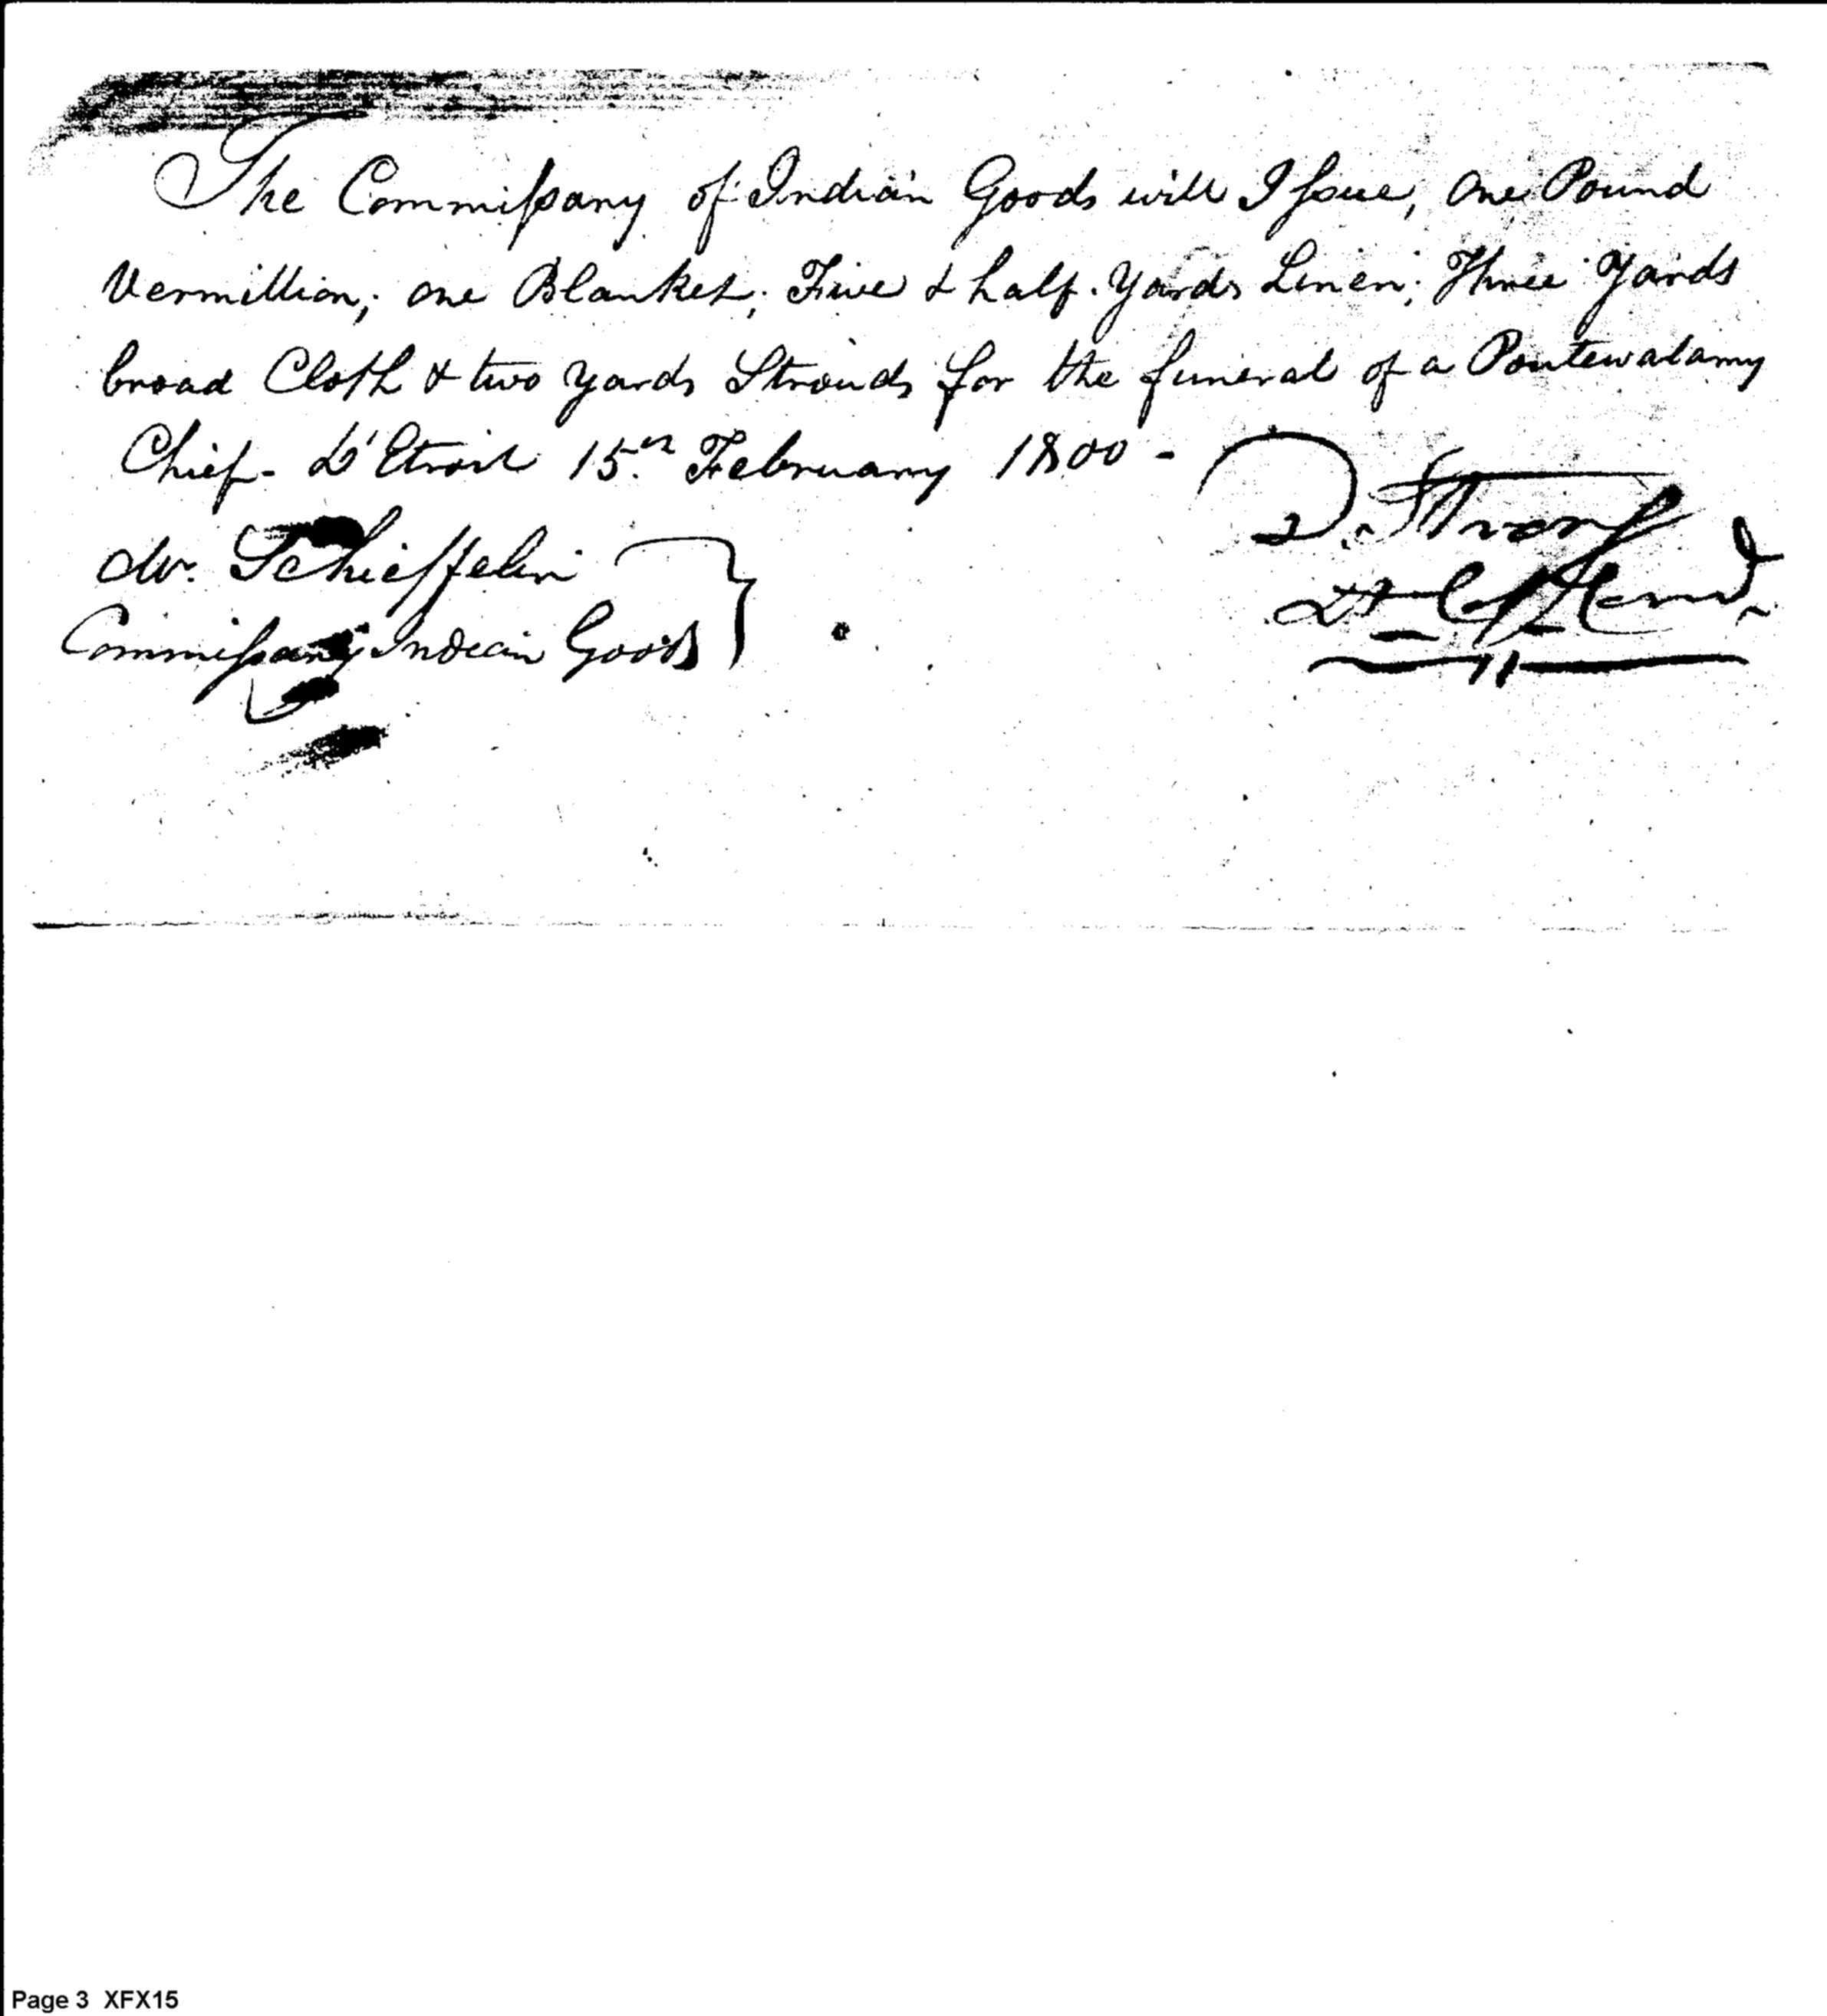 The Commissary of Indian Goods will Issue, One Pound
Vermillion; one Blanket; Five & half Yards Linen; Three Yards
broad Cloth & two yards Strouds for the funeral of a Poutewatamy
Chief - D'Etroit 15th February 1800 -
D. Strong
Lt Col Comd
Mr. Schieffelin
Commissary Indian Goods
Page 3 XFX15